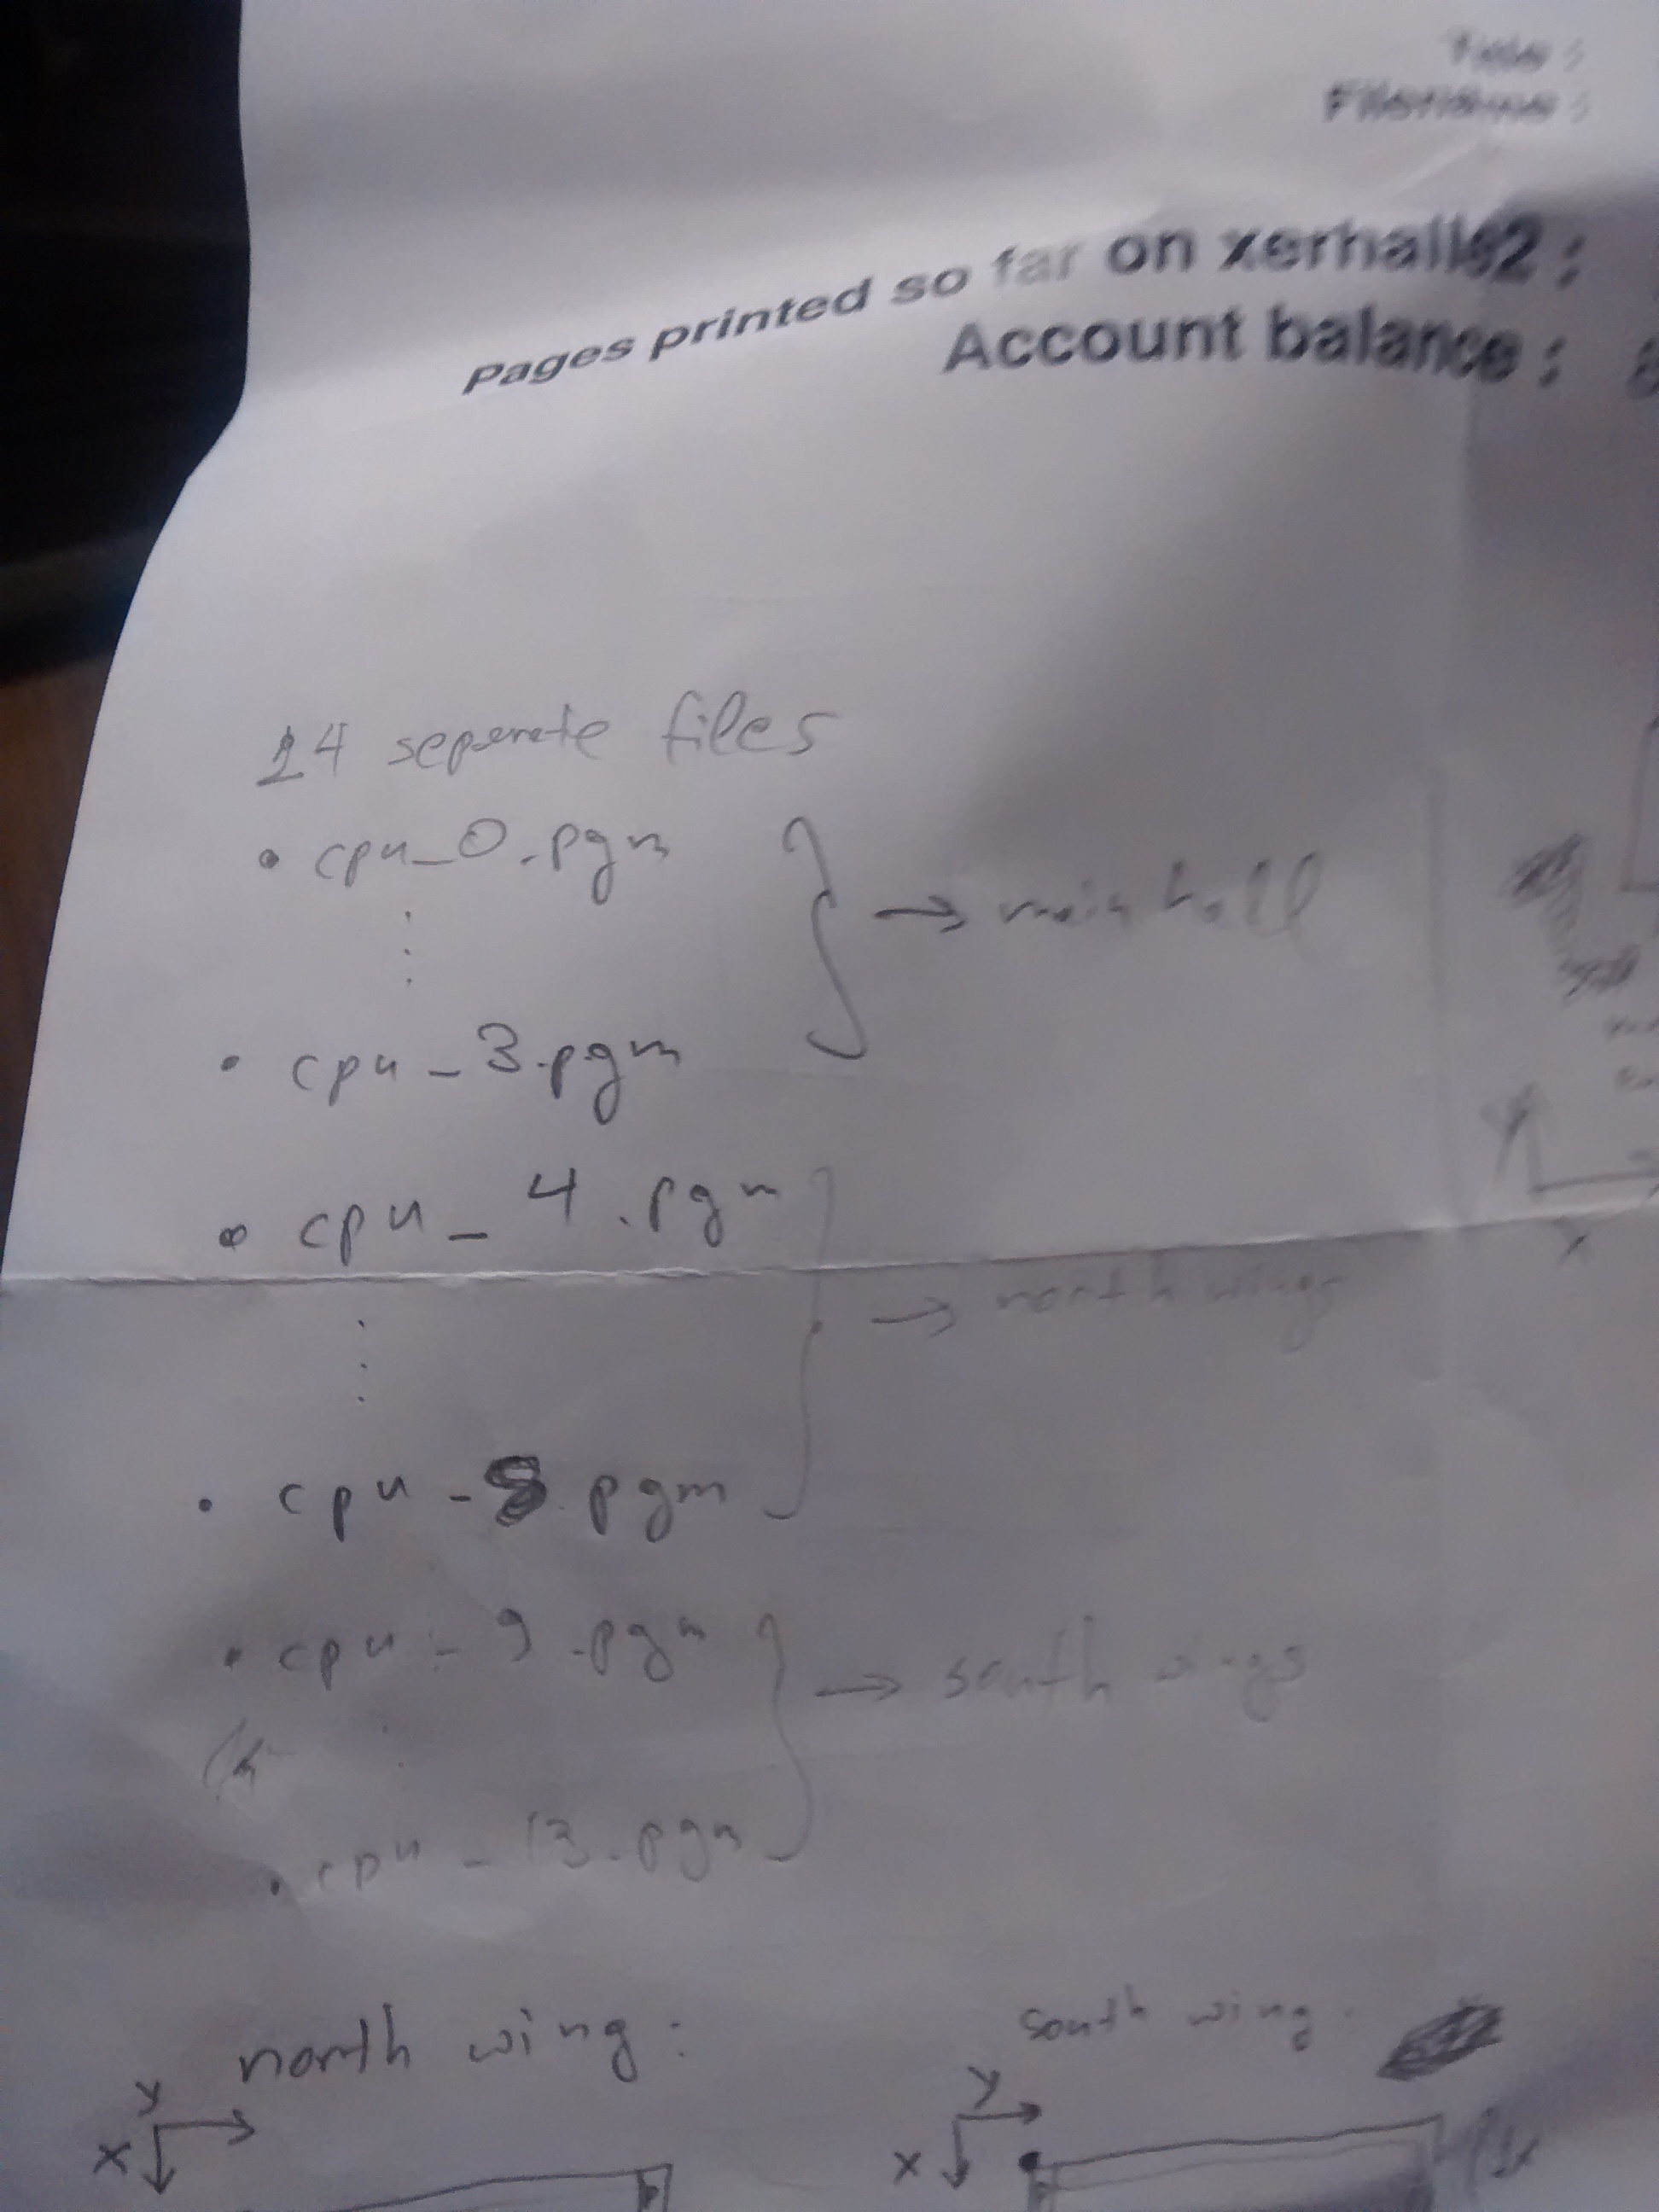 Title :
Filename :
Pages printed so far on xerhalls2 :
Account balance :
14 separate files
• cpu_0.pgm
→ main hall
• cpu_3.pgm
• cpu_4.pgm
→ north wings
• cpu_8.pgm
• cpu_9.pgm
→ south wings
• cpu_13.pgm
north wing:
south wing:
y
y
x
x
y
x